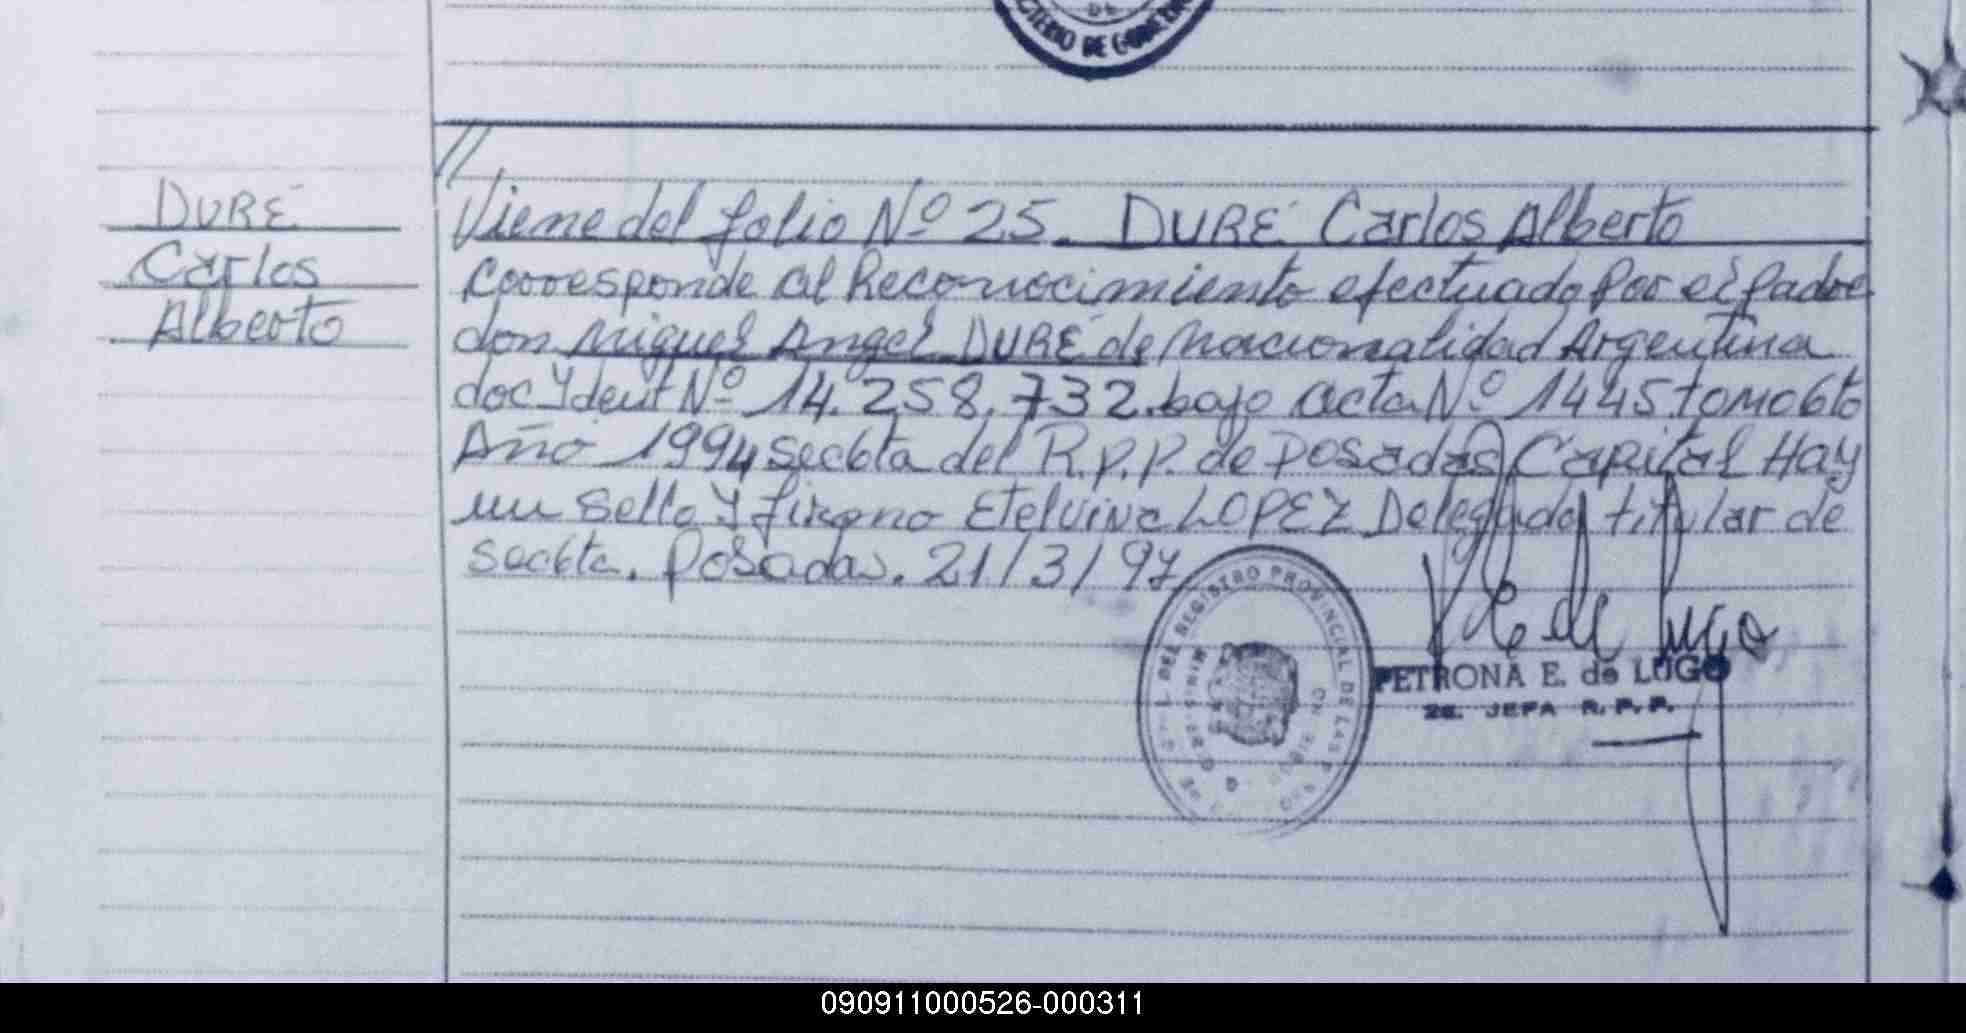 DE
DE GOBIERNO
//
DURÉ
Carlos
Alberto
Viene del folio Nº 25. DURÉ Carlos Alberto
Corresponde al Reconocimiento efectuado por el padre
don Miguel Angel DURÉ de Nacionalidad Argentina
doc Ydent Nº 14.258.732. bajo acta Nº 1445 tomo 6to
Año 1994 sec 6ta del R.P.P. de Posadas Capital Hay
un Sello Y firma Etelvina LOPEZ Delegada titular de
sec 6ta. Posadas. 21/3/97
DEL REGISTRO PROVINCIAL DE LAS P
PETRONA E. de LUGO
2a. JEFA R.P.P.
090911000526-000311